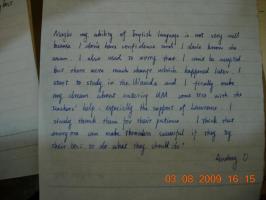 Maybe my ability of English language is not very well
because I don't have confidence and I don't know the
exam. I also used to worry that I can't be accepted
but there were much change which happened later. I
start to study in the and I finally make
my dream about entering UM come true with the
teachers' help, especially the support of Lawrence. I
study thank them for their patience. I think that
everyone can make themselves successful if they try
their best to do what they should do.
Audrey
03 08 2009 16 15